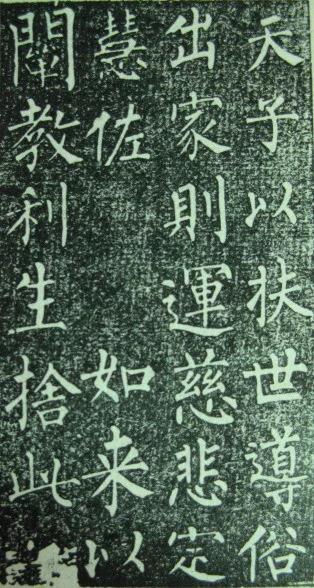 天子以扶世導俗
出家則運慈悲定
慧佐　如来以
闡教利生捨此